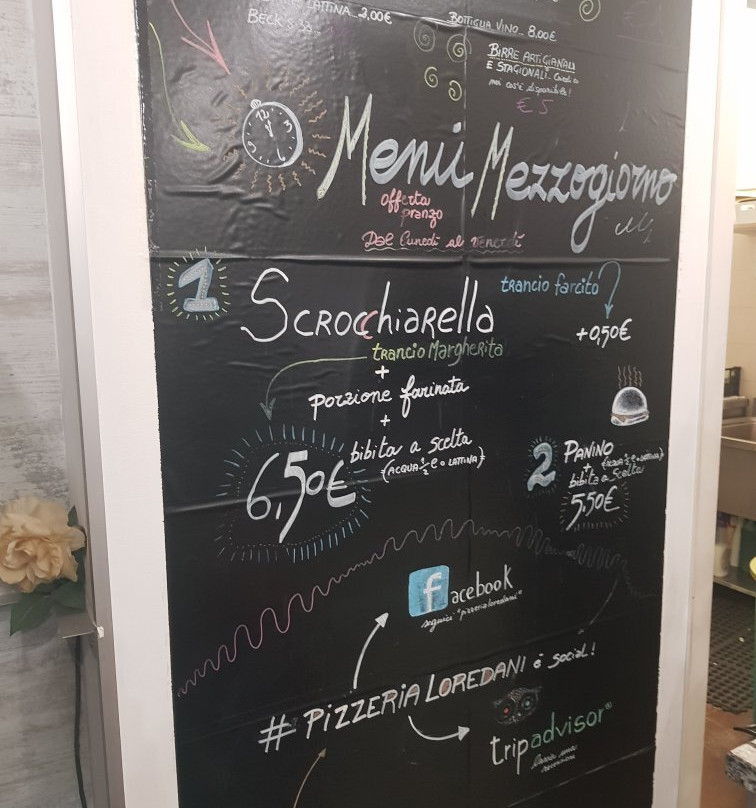 LATTINA 3,00€
BECK'S 33
BOTTIGLIA VINO 8,00€
BIRRE ARTIGIANALI
E STAGIONALI - Chiedi a
noi cos'è disponibile!
€ 5
Menù Mezzogiorno
offerta
pranzo
Dal lunedì al venerdì
1
Scrocchiarella
trancio farcito
+0,50€
trancio Margherita
+
porzione farinata
+
bibita a scelta
(ACQUA ½ e o LATTINA)
6,50€
2
PANINO
+
(ACQUA ½ e o LATTINA)
bibita a scelta
5.50€
facebook
seguici "pizzerialoredani"
# PIZZERIA LOREDANI è social!
tripadvisor®
lascia una
recensione